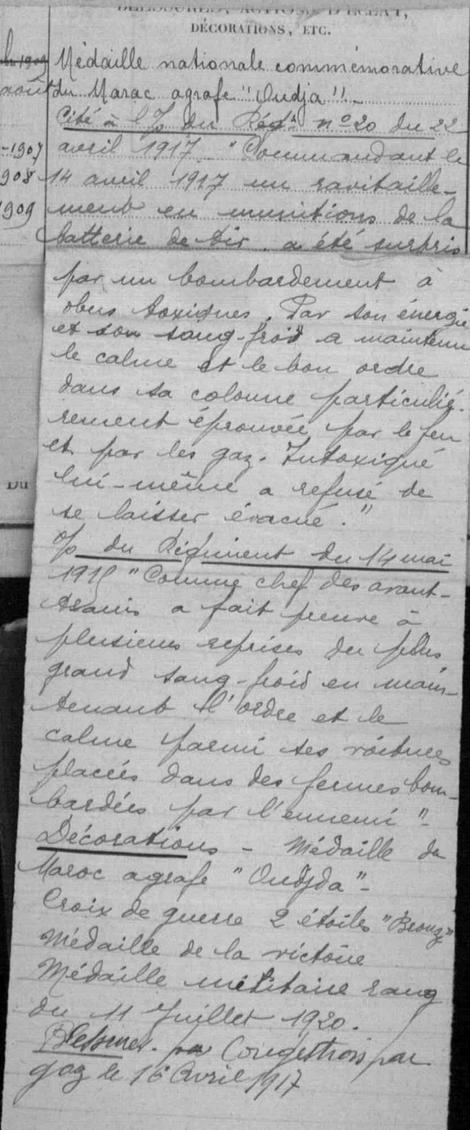 BLESSURES, ACTIONS D'ÉCLAT,
DÉCORATIONS, ETC.
Médaille nationale commémorative
août du Maroc agrafe "Oudja".
Cité à l'o/ du Régt n° 20 du 22
-1907 avril 1917. "Commandant le
908 14 avril 1917 un ravitaille-
1909 ment en munitions de la
batterie de tir, a été surpris
par un bombardement à
obus toxiques. Par son énergie
et son sang-froid a maintenu
le calme et le bon ordre
dans sa colonne particuliè-
rement éprouvée par le feu
et par les gaz. Intoxiqué
Du lui-même a refusé de
se laisser évacué."
o/ du Régiment du 14 mai
"Comme chef des avant-
trains a fait preuve à
plusieurs reprises du plus
grand sang-froid en main-
tenant l'ordre et le
calme parmi ses voitures
placées dans des fermes bom-
bardées par l'ennemi"-
Décorations - Médaille du
Maroc agrafe "Oudjda"-
Croix de guerre 2 étoiles "Bronze"
Médaille de la victoire
Médaille militaire rang
du 11 Juillet 1920.
Blessures. Congestion par
gaz le 16 Avril 1917